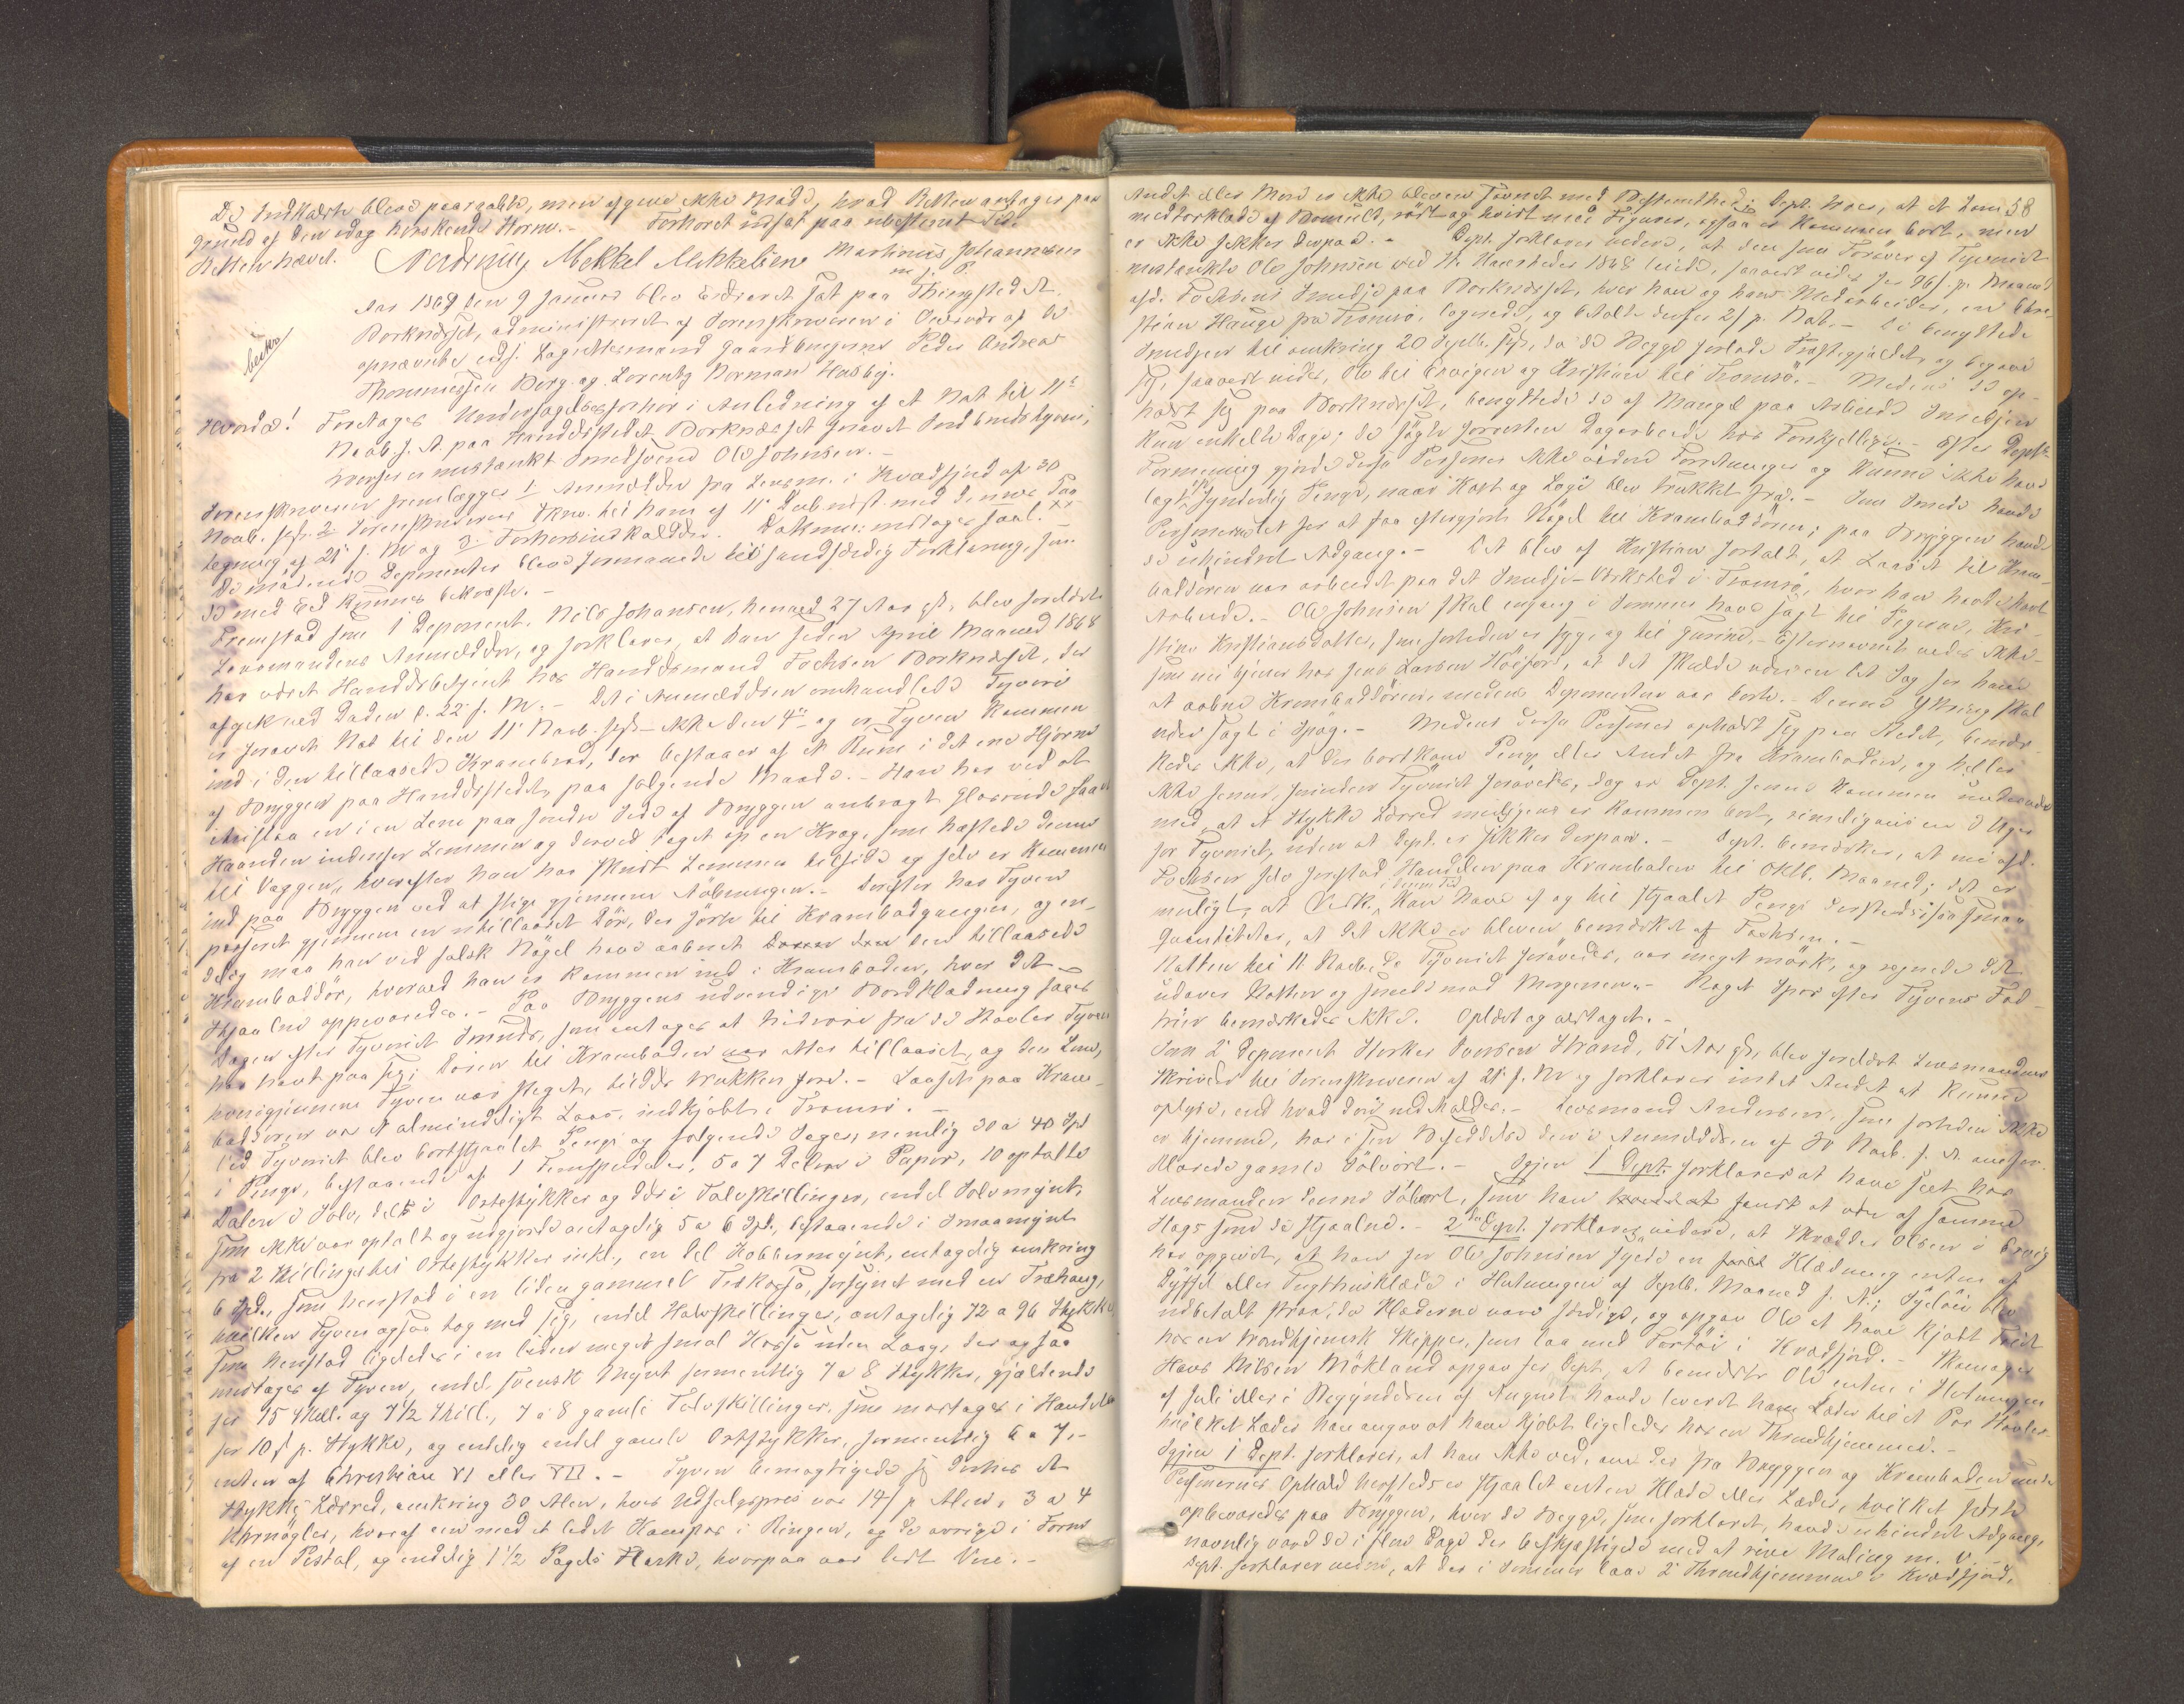 De Indkaldte bleve paaraabte, men afgave ikke Møde, hvad Retten antager paa
Grund af den idag herskende Storm. - Forhøret udsat paa ubestemt Tid.
Retten hævet. Mekkel Mekkelsen Martinus Johannesen
m. f. P.
Aar 1869 den 9 Januar blev Extraret sat paa Thingstedet
Borkenæsset, administreret af Sorenskriveren i Overvær af de
opnævnte eds. Lagrettesmænd Gaardbrugerne Peder Andreas
Thommessen Borg og Lorentz Norman Husby.
Hvorda! Foretages Undersøgelsesforhør i Anledning af et Nat til 11te
Novb. f. A. paa Handelsstedet Borkenæsset forøvet Indbrudstyveri,
hvorfor er mistænkt Smedsvend Ole Johnsen. -
Sorenskriveren fremlægger 1. Anmeldelse fra Lensm. i Kvædfjord af 30
Novb. sidst. 2. Sorenskriverens Skriv. til ham af 11 Decb. næst med dennes Paa-
tegning af 21 s. M. og 3. Forhørsindkaldelse. Dokum. indtages saal.
De mødende Deponenter bleve formanede til sandfærdig Forklaring, som
de med Ed kunne bekræfte. -
Fremstod som 1 Deponent Nils Johansen, henved 27 Aar gl., blev forelæst
Lensmandens Anmeldelse, og forklarer, at han siden April Maaned 1868
har været Handelsbetjent hos Handelsmand Fochsen Borkenæsset, der
afgik ved Døden d. 22 f. M. - Det i Anmeldelsen omhandlede Tyveri
er forøvet Nat til den 11 Novb. sidst - ikke den 4de og er Tyven kommen
ind i den tillaasede Krambod, der bestaaer af et Rum i det ene Hjørne
af Bryggen paa Handelsstedet, paa følgende Maade. - Han har ved at
itrykke en i en Lem paa søndre Side af Bryggen anbragt Glasrude faaet
Haanden indenfor Lemmen og derved taget op en Krog, som hæftede denne
til Væggen, hvorefter han har skudt Lemmen tilside og selv er kommen
ind paa Bryggen ved at stige gjennem Aabningen. - Derefter har Tyven
passeret gjennem en utillaaset Dør, der fører til Krambodgangen, og en-
delig maa han ved falsk Nøgel have aabnet den tillaasede
Kramboddør, hvorved han er kommen ind i Kramboden, hvor det
Stjaalne opbevaredes. - Paa Bryggens udvendige Bordklædning saaes
Dagen efter Tyveriet Smuds, som antages at hidrøre fra de Støvler Tyven
har havt paa sig; Døren til Kramboden var atter tillaaset, og den Lem,
hvorigjennem Tyven var steget, ligeledes trukken fore. - Laaset paa Kram-
boddøren var et almindeligt Laas, indkjøbt i Tromsø. -
Ved Tyveriet blev bortstjaalet Penge og følgende Sager, nemlig 30 a 40 Spd
i Penge, bestaaende af 1 Femspeciedaler, 5 a 7 Dalere i Papir, 10 optalte
Dalere i Sølv, dels i Ortestykker og dels i Tolvskillinger, endel Sølvmynt,
som ikke var optalt og udgjorde antagelig 5 a 6 Spd., bestaaende i Smaamynt
fra 2 Skillinger til Ortestykker inkl., en Del Kobbermynt, antagelig omkring
6 Spd., som henstod i en liden gammel Fiskøse, forsynet med en Træhang,
hvilken Tyven ogsaa tog med sig, endel Halvskillinger, antagelig 72 a 96 Stykker
som henstod ligeledes i en liden meget smal Kasse uden Laag, der ogsaa
medtoges af Tyven, endel svensk Mynt formentlig 7 a 8 Stykker, gjældende
for 15 Skill. og 7 1/2 Skill., 7 a 8 gamle Tolvskillinger, som modtages i Handelen
for 10 s p. Stykke, og endelig endel gamle Ortstykker, formentlig 6 a 7, -
enten af Christian VI eller VII. - Tyven bemægtigede sig derhos et
Stykke Lærred, omkring 30 Alen, hvis Udsalgspris var 14 s p. Alen, 3 a 4
Uhrnøgler, hvoraf een med et lidet Kompas i Ringen, og de øvrige i Form
af en Pistol, og endelig 1 1/2 Pægels Flaske, hvorpaa var lidt Vin. -
58
Andet eller Mere er ikke bleven savnet med Bestemthed; Dept. troer, at et
er ikke sikker derpaa. - Dept. forklarer videre, at den som Forøver af Tyveriet
mistænkte Ole Johnsen ved St. Hanstider 1868 leiede, saavidt vides for 96 s p. Maaned
afd. Fochsens Smedje paa Borkenæsset, hvor han og hans Medarbeider, en Chri-
stian Hauge fra Tromsø, logerede, og betalte derfor 2 s p. Nat. - De benyttede
Smedjen til omkring 20 Septb. sidst, da de Begge forlode Præstegjældet og begave
sig, saavidt vides, Ole til Ervigen og Kristian til Tromsø. - Medens de op-
holdt sig paa Borkenæsset, benyttede de af Mangel paa Arbeide Smedjen
kun enkelte Dage; de søgte forresten Dagarbeide hos Forskjellige. - Efter Depts
Formening gjorde disse Personer ikke videre Fortjeneste og kunne ikke have
lagt op synderlig Penge, naar Kost og Logi blev trukket fra. - Som Smede havde
Personerne let for at faa eftergjort Nøgel til Kramboddøren; paa Bryggen havde
de uhindret Adgang. - Det blev af Kristian fortalt, at Laaset til Kram-
boddøren var arbeidet paa det Smedje-Værksted i Tromsø, hvor han havde havt
Arbeide. - Ole Johnsen skal engang i Sommer have sagt til Pigerne, Kri-
stine Kristiansdatter, som forhen er syg, og til Gurine, - Efternavnet vides ikke -
som nu tjener hos Jens Larsen Høifors, at det skulde være en let Sag for ham
at aabne Kramboddøren, medens Deponenten var borte. Denne Ytring skal
være sagt i Spøg. - Medens disse Personer opholdt sig paa Stedet, bemær-
kedes ikke, at der bortkom Penge eller Andet fra Kramboden, og heller
ikke senere, forinden Tyveriet forøvedes, dog er Dept. senere kommen underveir
med, at et Stykke Lærred muligens er kommen bort, rimeligvis en 8 Uger
før Tyveriet, uden at Dept. er sikker derpaa. - Dept. bemærker, at nu afd.
Fochsen selv forestod Handelen paa Kramboden til Oktb. Maaned; det er
muligt, at Vedk. i denne Tid kan have af og til stjaalet Penge dersteds i saa smaa
Quantiteter, at det ikke er bleven bemærket af Fochsen. -
Natten til 11 Novb. da Tyveriet forøvedes, var meget mørk, og regnede det
udover Natten og sneede mod Morgenen. - Noget Spor efter Tyvens Fod-
trin bemærkedes ikke. Oplæst og vedtaget. -
Som 2. Deponent Sivertsen Strand, 51 Aar gl., blev forelæst Lensmandens
Skrivelse til Sorenskriveren af 21 f. M. og forklarer intet Andet at kunne
oplyse, end hvad deri er ommeldt. - Lensmand Andersen, som forhen ikke
er hjemme, har i sin Besiddelse den i Anmeldelsen af 30 Novb. f. A. anførte
Olesede gamle Sølvort. - Igjen 1 Dept. forklarer at have seet hos
Lensmanden denne Sølvort, som han fandt at være af samme
Slags som de stjaalne. - 2den Dept. forklarer videre, at Skrædder Olsen i Ervig
har opgivet, at han for Ole Johnsen syede en Klædning enten af
Dyffel eller Tugthusklæde i Slutningen af Septb. Maaned f. A.; Sylønnen blev
udbetalt strax, da Klæderne vare færdige, og opgav Ole at have kjøbt Tøiet
hos en trondhjemsk Skipper, som laa med Fartøi i Kvædfjord. - Skomager
Hans Nilsen Mækland opgav for Dept., at bemeldte Ole enten i Slutningen
af Juli eller i Begyndelsen af August havde leveret ham Læder til et Par Støvler,
hvilket Læder han angav at have kjøbt ligeledes hos en Throndhjemmer. -
Igjen 1 Dept. forklarer, at han ikke ved, om der fra Bryggen og Kramboden under
Personernes Ophold hersteds er stjaalet enten Klæde eller Læder, hvilket sidste
opbevaredes paa Bryggen, hvor de Begge, som forklaret, havde uhindret Adgang,
navnlig vare de i flere Dage der beskjæftigede med at rive Maling m. V. -
Dept. forklarer videre, at der i Sommer laae 2 Throndhjemmere i Kvædfjord,